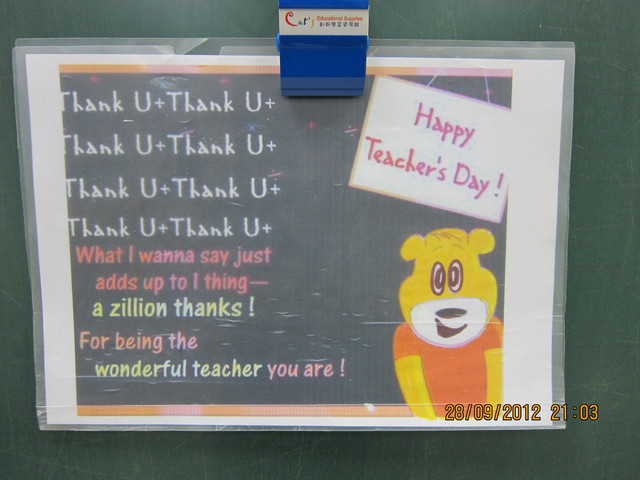 Cat's Educational Supplies
Thank U+Thank U+
Thank U+Thank U+
Thank U+Thank U+
Thank U+Thank U+
Happy
Teacher's Day !
What I wanna say just
adds up to 1 thing—
a zillion thanks !
For being the
wonderful teacher you are !
28/09/2012 21:03